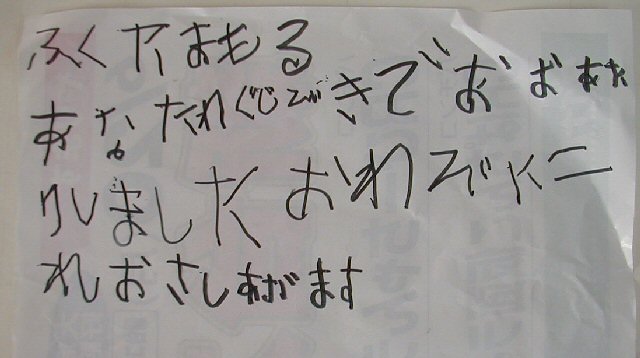 ふくたまもる
あなたわぐじびきでおおあた
りしましたおわびにこ
れおさしあがます